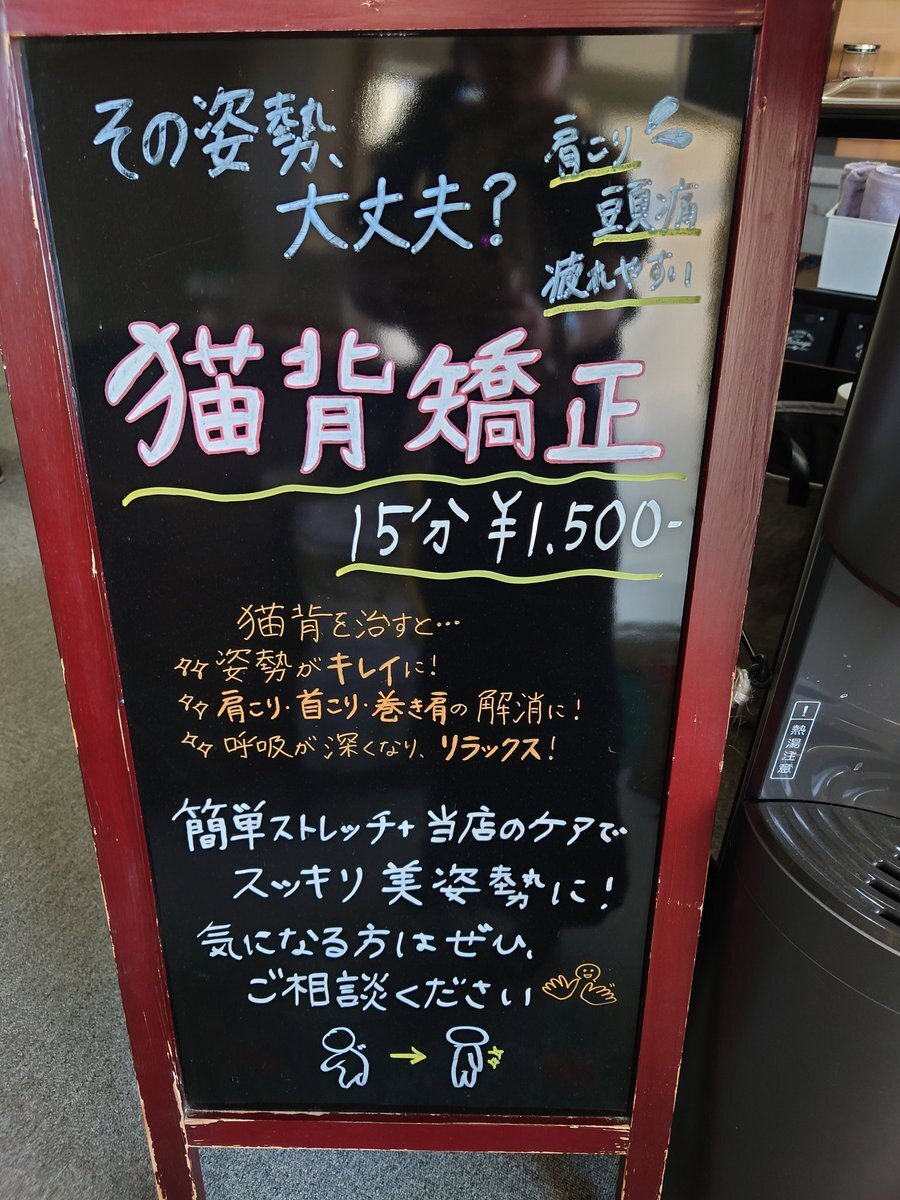 その姿勢、
大丈夫?
肩こり
頭痛
疲れやすい
猫背矯正
15分 ¥1.500-
猫背を治すと…
姿勢がキレイに!
肩こり・首こり・巻き肩の解消に!
呼吸が深くなり、リラックス!
簡単ストレッチ+当店のケアで
スッキリ美姿勢に!
気になる方はぜひ、
ご相談ください
! 熱湯注意